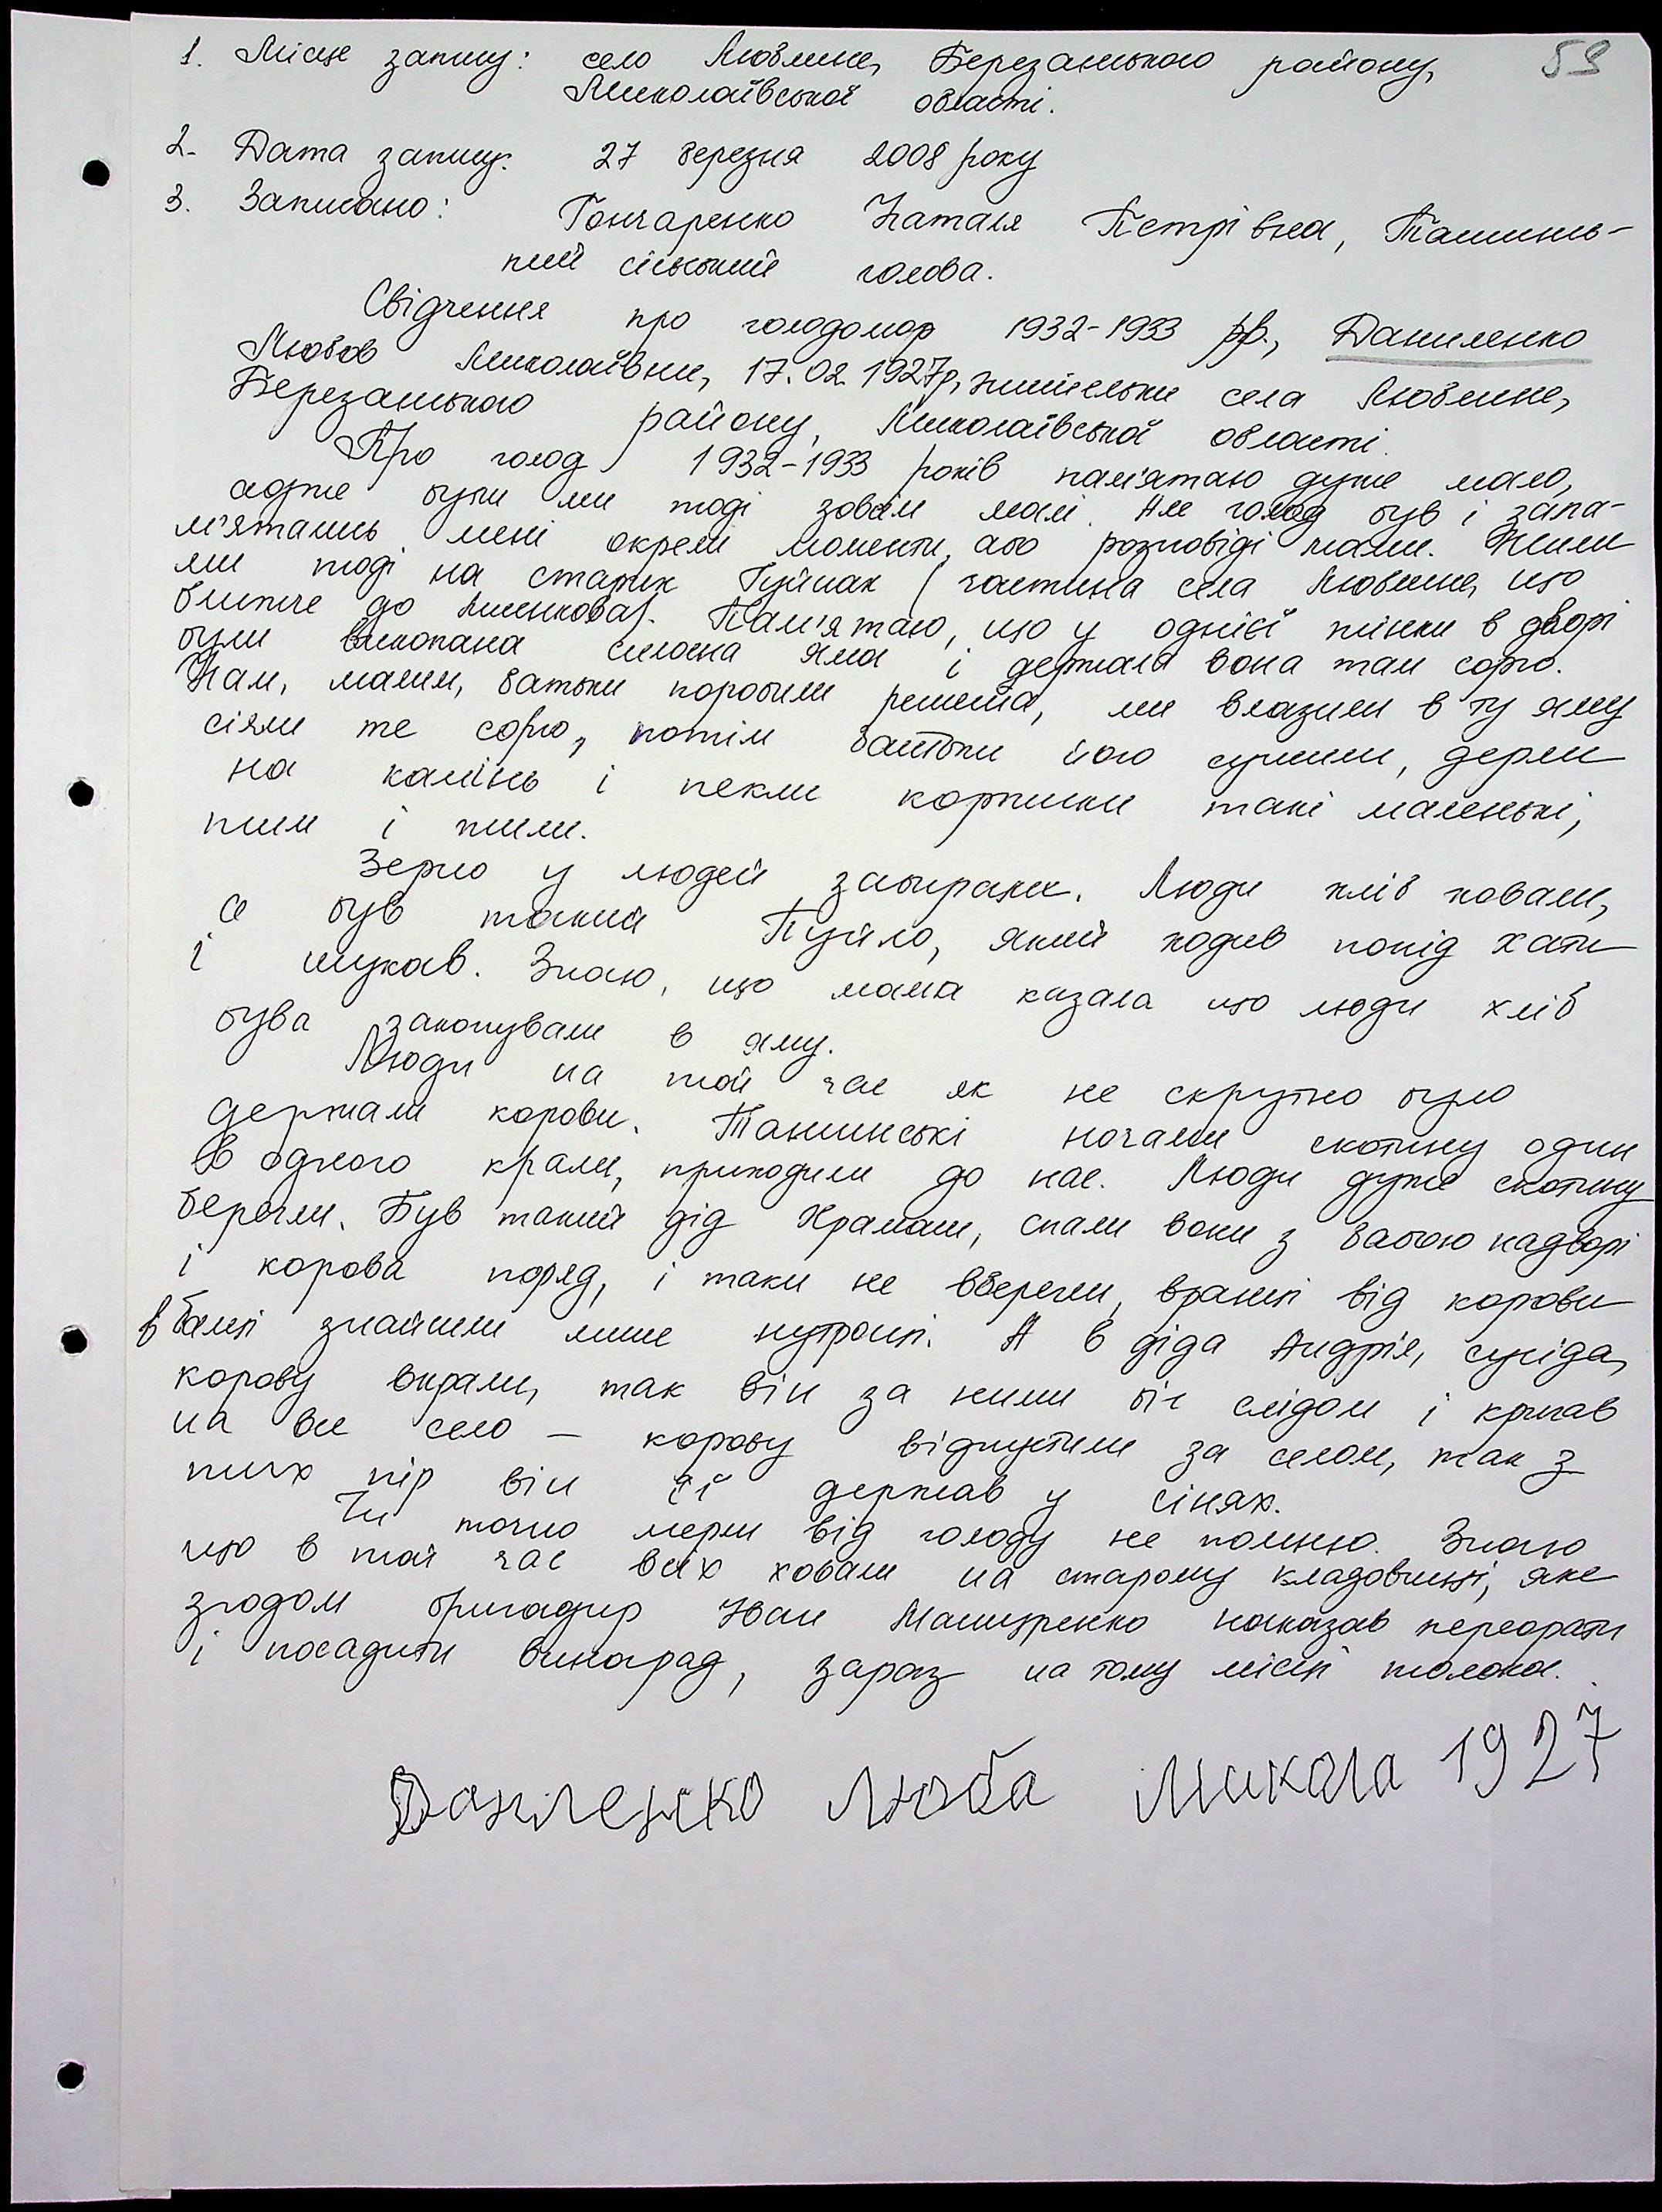 59
1. Місце запису: село Люблине, Березанського району,
Миколаївської області.
2. Дата запису: 27 березня 2008 року
3. Записано: Гончаренко Наталя Петрівна, Ташинсь-
кий сільський голова.
Свідчення про голодомор 1932-1933 рр., Даниленко
Любов Миколаївни, 17.02.1927р, жительки села Люблине,
Березанського району, Миколаївської області.
Про голод 1932-1933 років пам'ятаю дуже мало,
адже були ми тоді зовсім малі. Але голод був і запа-
м'ятались мені окремі моменти або розповіді мами. Жили
ми тоді на старих (частина села Люблине, що
ближче до). Пам'ятаю, що у однієї жінки в дворі
були викопана силосна яма і держала вона там сорго.
Нам, малим, батьки поробили решета, ми влазили в ту яму
сіяли те сорго, потім батьки його сушили, дерли
на камінь і пекли коржики такі маленькі,
тим і жили.
Зерно у людей забирали. Люди хліб ховали,
а був такий Пуйло, який ходив попід хати
і шукав. Знаю, що мама казала що люди хліб
бува закопували в яму.
Люди на той час як не скрутно було
держали корови. Ташинські ночами скотину один
в одного крали, приходили до нас. Люди дуже скотину
берегли. Був такий дід Храмаш, спали вони з бабою надворі
і корова поряд, і таки не вберегли, вранці від корови
в балці знайшли лише нутрощі. А в діда Андрія, сусіда,
корову вкрали, так він за ними біг слідом і кричав
на все село – корову відпустили за селом, так з
тих пір він її держав у сінях.
Чи точно мерли від голоду не помню. Знаю
що в той час всіх ховали на старому кладовищі, яке
згодом бригадир Іван наказав переорати
і посадити виноград, зараз на тому місці толока.
Данленко Люба Микола 1927